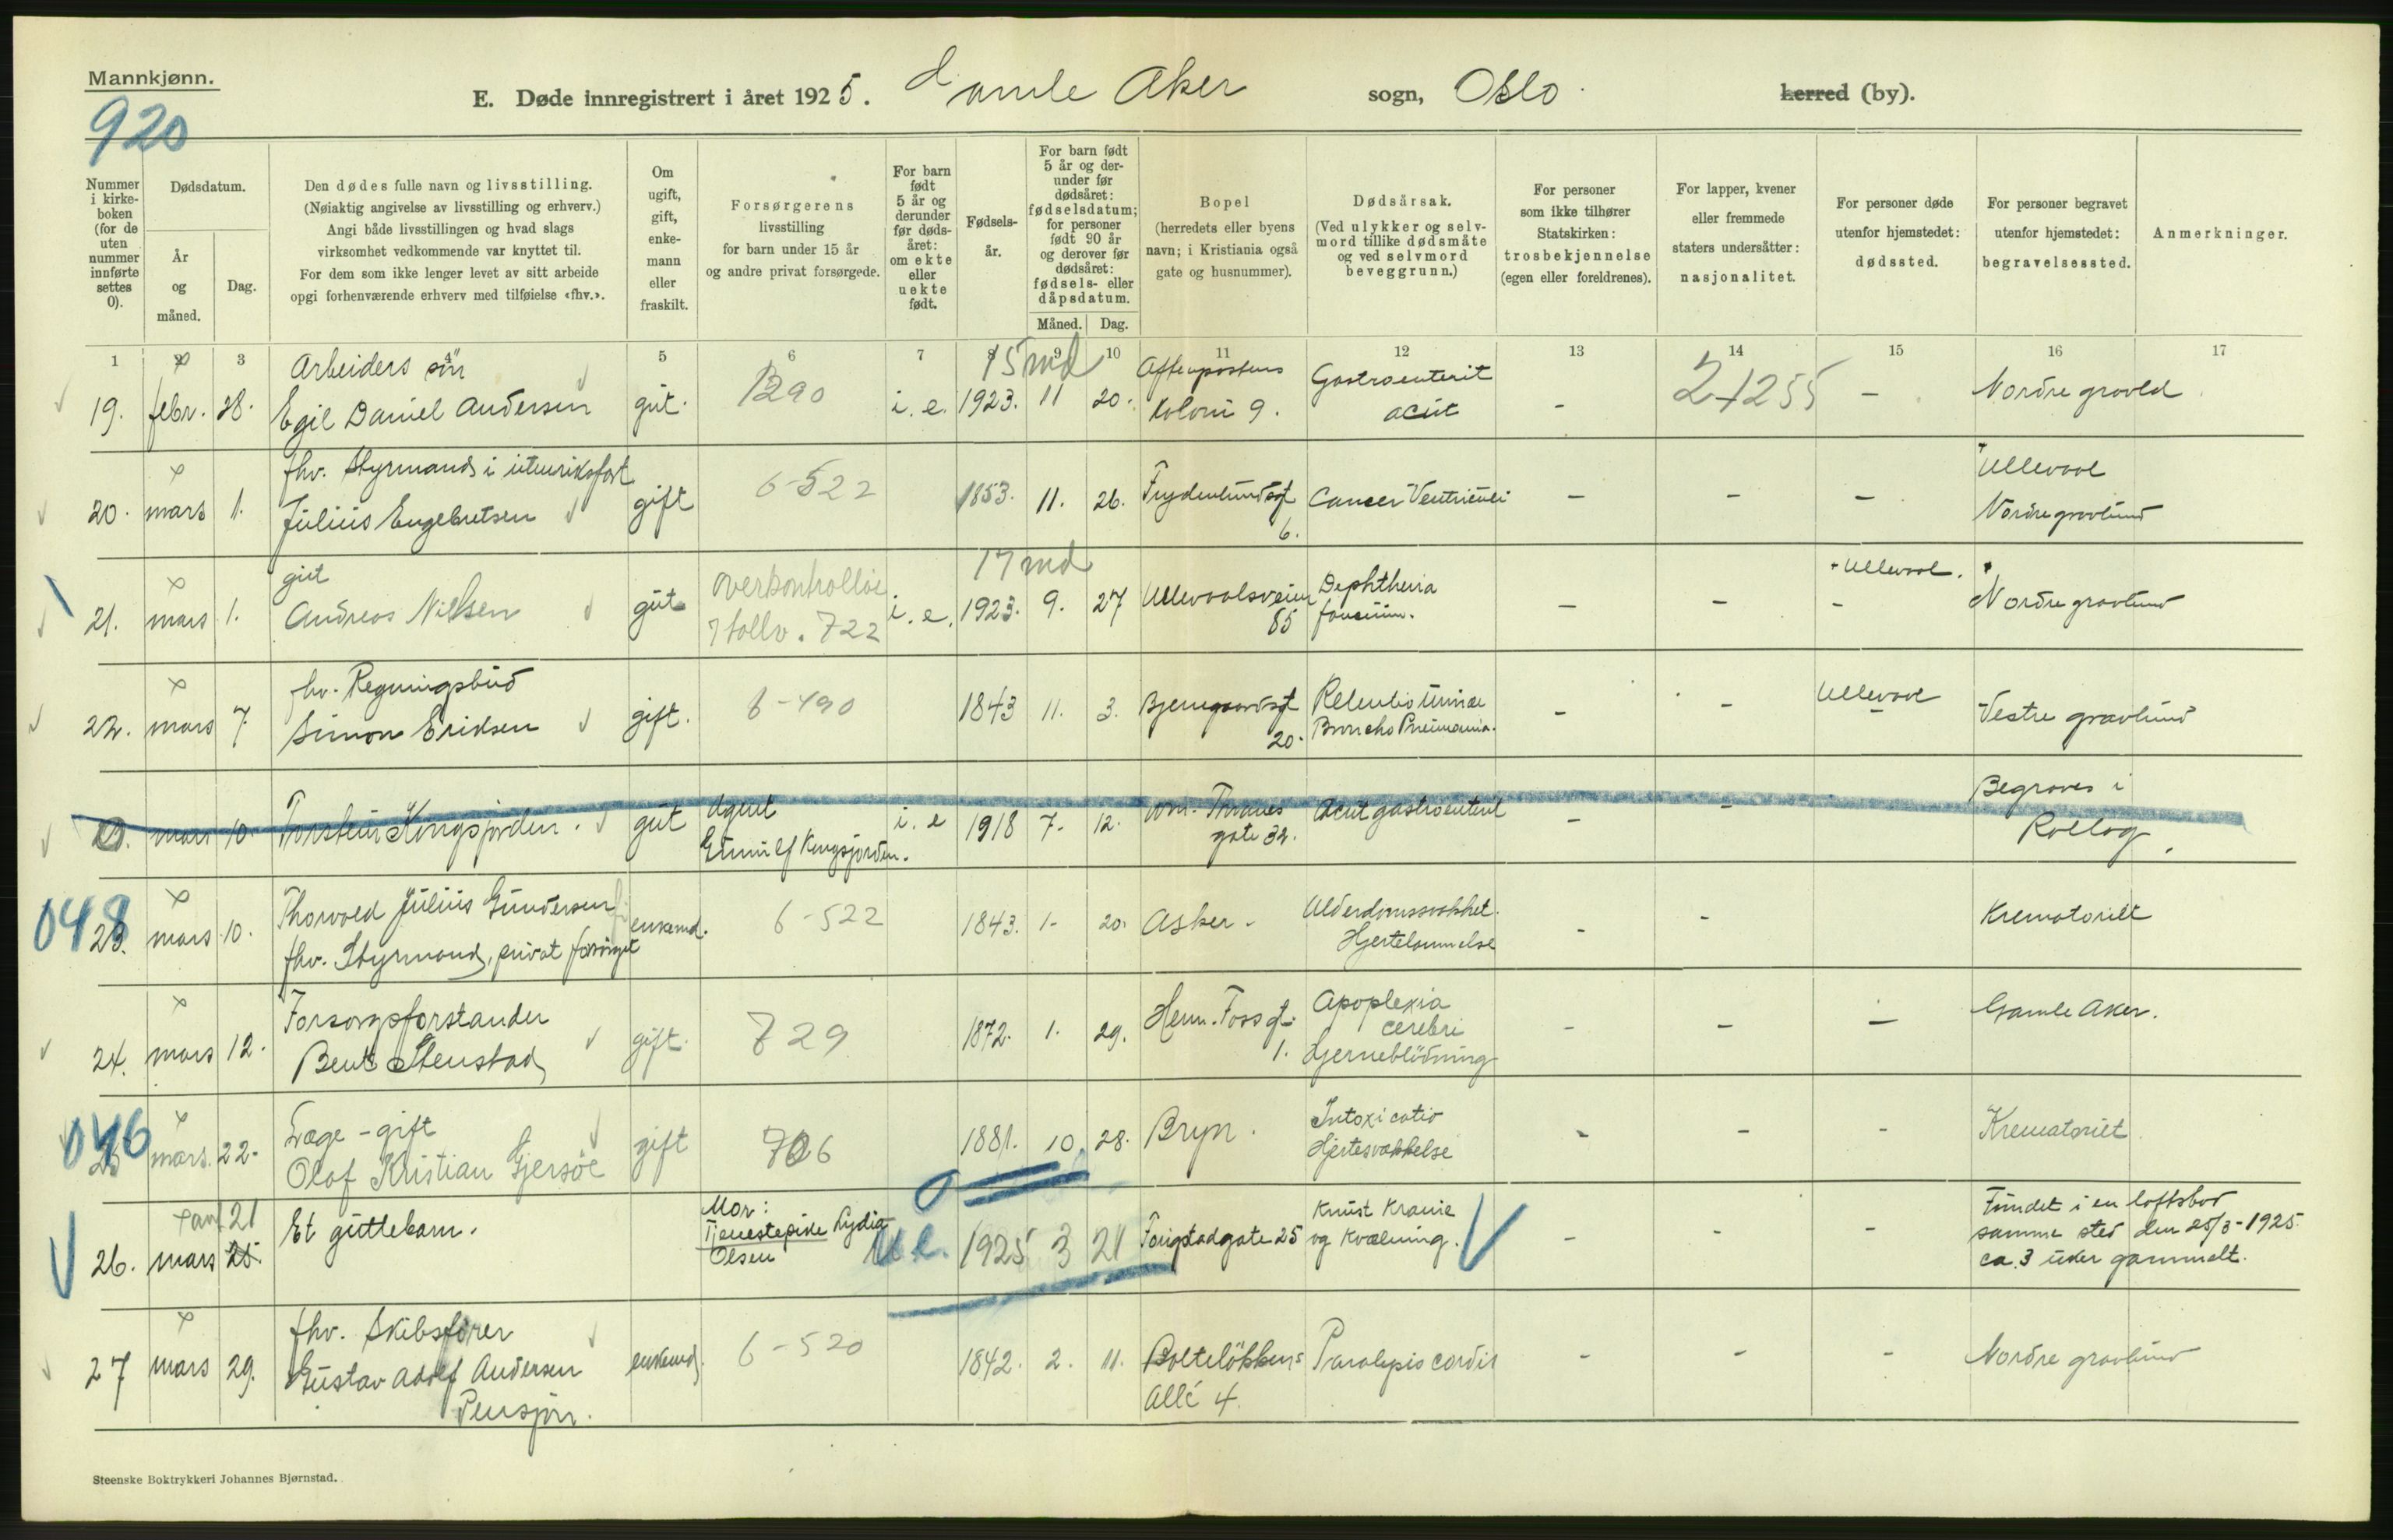 Mannkjønn.
920
E. Døde innregistrert i året 1925. Gamle Aker sogn, Oslo herred (by).
Nummer i kirkeboken (for de uten nummer innførte settes 0).
Dødsdatum.
År og måned.
Dag.
Den dødes fulle navn og livsstilling.
(Nøiaktig angivelse av livsstilling og erhverv.)
Angi både livsstillingen og hvad slags
virksomhet vedkommende var knyttet til.
For dem som ikke lenger levet av sitt arbeide
opgi forhenværende erhverv med tilføielse «fhv.».
Om ugift, gift, enkemann eller fraskilt.
Forsørgerens livsstilling for barn under 15 år og andre privat forsørgede.
For barn født 5 år og derunder før dødsåret: om ekte eller uekte født.
Fødselsår.
For barn født 5 år og derunder før dødsåret: fødselsdatum; for personer født 90 år og derover før dødsåret: fødsels- eller dåpsdatum.
Måned. Dag.
Bopel (herredets eller byens navn; i Kristiania også gate og husnummer).
Dødsårsak. (Ved ulykker og selvmord tillike dødsmåte og ved selvmord beveggrunn.)
For personer som ikke tilhører Statskirken: trosbekjennelse (egen eller foreldrenes).
For lapper, kvener eller fremmede staters undersåtter: nasjonalitet.
For personer døde utenfor hjemstedet: dødssted.
For personer begravet utenfor hjemstedet: begravelsessted.
Anmerkninger.
1 2 3 4 5 6 7 8 9 10 11 12 13 14 15 16 17
15 md
Arbeiders søn
19. febr. 28. Egil Daniel Andersen gut. 1290 i. e. 1923. 11 20. Aftenpostens Koloni 9. Gastroenterit acut - 2+255 - Nordre gravld
fhv. Styrmand i utenriksfart
20. mars 1. Julius Engebretsen gift 6-522 1853. 11. 26. Frydenlundsgt 6. Cancer Ventriculi - - - Ullevaal Nordre gravlund
17 md
gut
21. mars 1. Andreas Nielsen gut Overkontrollør Tollv. 722 i. e. 1923. 9. 27 Ullevaalsveien 85 Dephtheria faucium. - - Ullevaal. - Nordre gravlund
fhv. Regningsbud
22. mars 7 Simon Eriksen gift. 6-490 1843 11. 3. Bjerregaardsgt 20. Retentio Urinae Broncho Pneumonia. - - Ullevaal - Vestre gravlund
mars 10. Torstein Kongsjorden. gut Agent Gunnulf Kongsjorden. i. e 1918 7- 12. Marc. Thranes gate 32. Acut gastroenterit - - Begraves i Rollag.
048
23. mars 10. Thorvald Julius Gundersen fhv. Styrmand, privat forsørget enkemd. 6-522 1843. 1- 20. Asker. Alderdomssvakhet. Hjertelammelse - - Krematoriet
Forsorgsforstander
24. mars 12. Bent Stenstad gift. 729 1872. 1. 29. Henr. Foss gt. 1. Apoplexia cerebri Hjerneblödning - - - Gamle Aker.
046
Læge - gift
25 mars. 22. Olaf Kristian Gjersøe gift 706 1881. 10. 28. Bryn. Intoxicatio Hjertesvækkelse - - - Krematoriet
ant 21
26. mars 25. Et guttebarn. Mor: Tjenestepike Lydia Olsen U.e. 1925 3 21 Torigstadgate 25 Knust Kranie og Kvælning. - - - Fundet i en loftsbod samme sted den 25/3-1925. ca. 3 uker gammelt.
fhv. Skibsfører
27 mars 29. Gustav Adolf Andersen enkemd. 6-520 1842. 2. 11. Bolteløkkens Allé 4. Paralysis cordis - - - Nordre gravlund
Pensjon.
Steenske Boktrykkeri Johannes Bjørnstad.